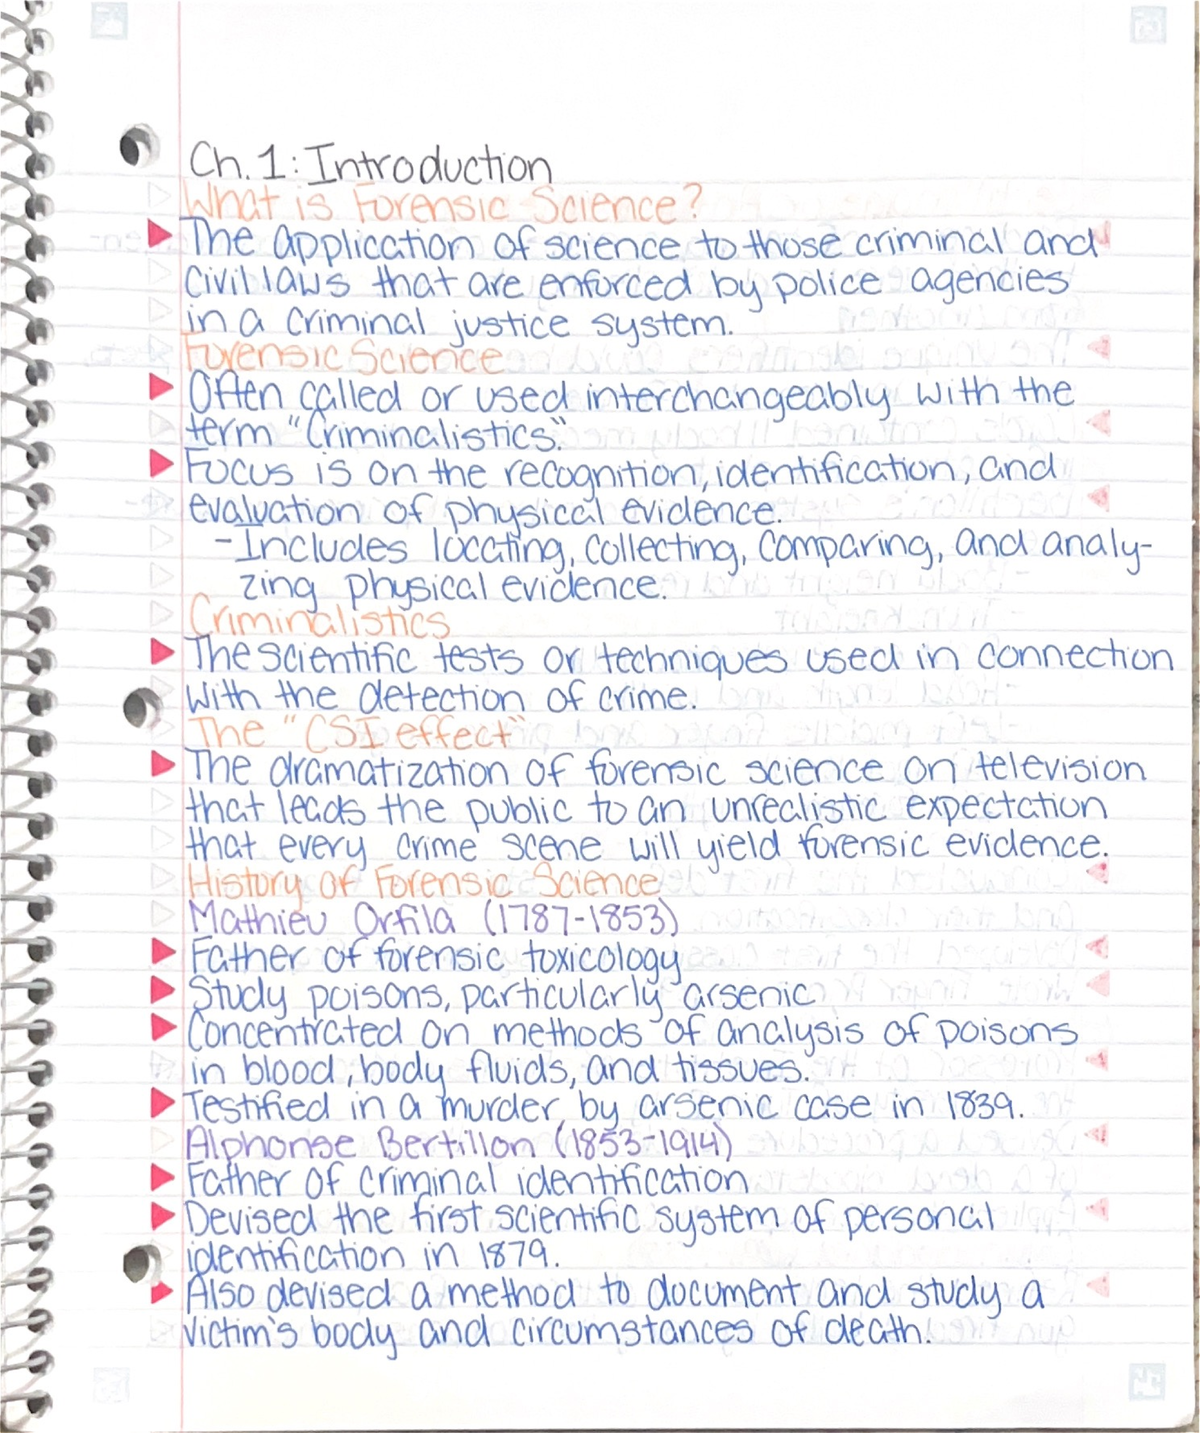 Ch. 1: Introduction
What is Forensic Science?
The application of science to those criminal and
civil laws that are enforced by police agencies
in a criminal justice system.
Forensic Science
Often called or used interchangeably with the
term "Criminalistics."
Focus is on the recognition, identification, and
evaluation of physical evidence.
-Includes locating, collecting, comparing, and analy-
zing physical evidence.
Criminalistics
The scientific tests or techniques used in connection
with the detection of crime.
The "CSI effect"
The dramatization of forensic science on television
that leads the public to an unrealistic expectation
that every crime scene will yield forensic evidence.
History of Forensic Science
Mathieu Orfila (1787-1853)
Father of forensic toxicology
Study poisons, particularly arsenic
Concentrated on methods of analysis of poisons
in blood, body fluids, and tissues.
Testified in a murder by arsenic case in 1839.
Alphonse Bertillon (1853-1914)
Father of criminal identification
Devised the first scientific system of personal
identification in 1879.
Also devised a method to document and study a
victim's body and circumstances of death.